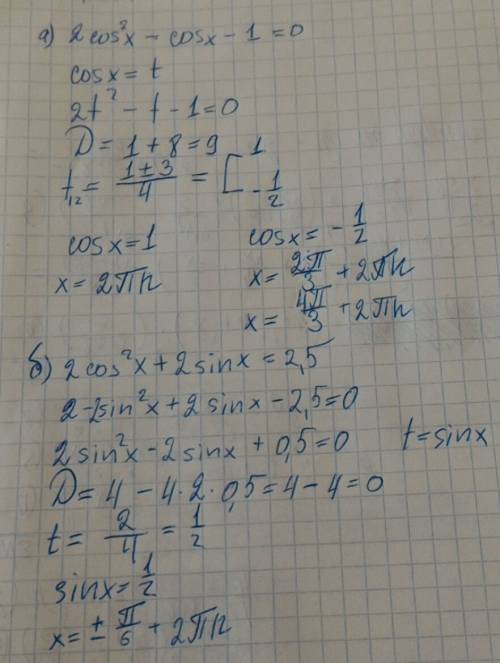 а) 2cos²x - cosx - 1 = 0
cosx = t
2t² - t - 1 = 0
D = 1 + 8 = 9
t₁₂ = (1 ± 3)/4 = [ 1 ; -1/2
cosx = 1
x = 2πn
cosx = -1/2
x = 2π/3 + 2πn
x = 4π/3 + 2πn
б) 2cos²x + 2sinx = 2,5
2 - 2sin²x + 2sinx - 2,5 = 0
2sin²x - 2sinx + 0,5 = 0 t = sinx
D = 4 - 4·2·0,5 = 4 - 4 = 0
t = 2/4 = 1/2
sinx = 1/2
x = ± π/6 + 2πn